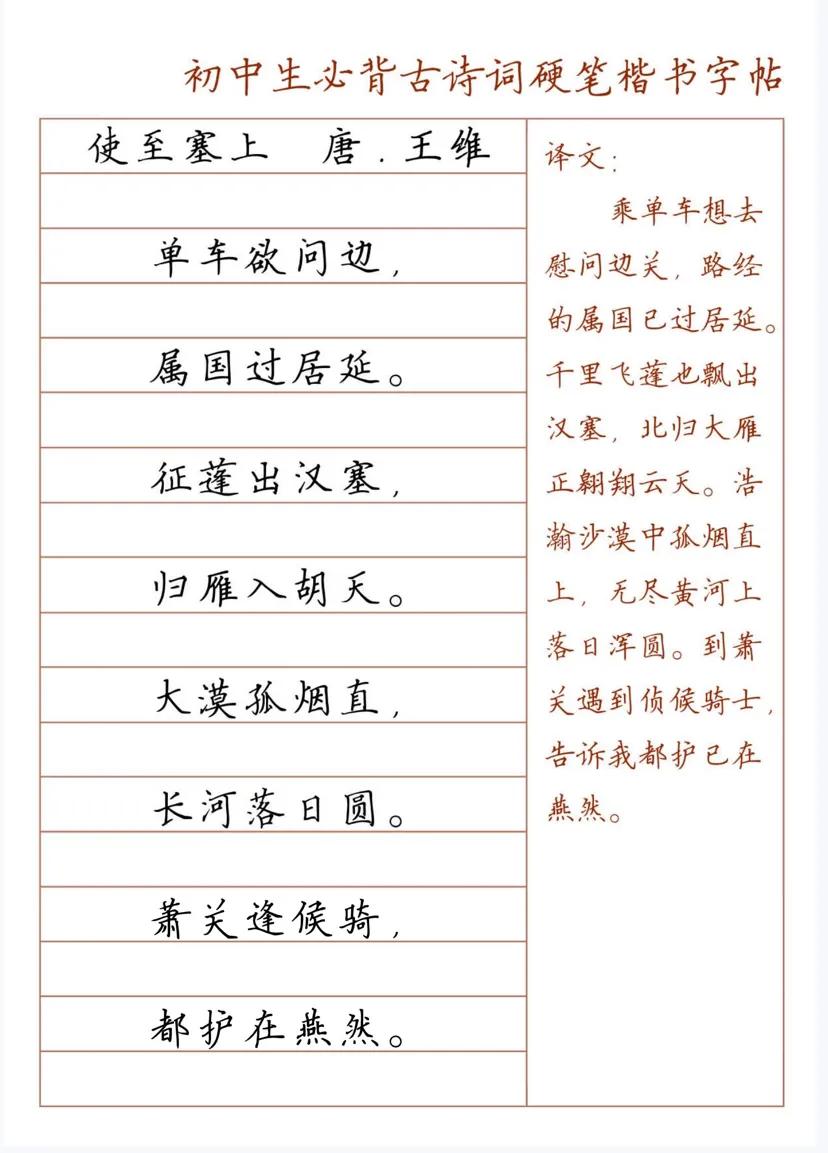 初中生必背古诗词硬笔楷书字帖
使至塞上 唐.王维
单车欲问边，
属国过居延。
征蓬出汉塞，
归雁入胡天。
大漠孤烟直，
长河落日圆。
萧关逢候骑，
都护在燕然。
译文：
乘单车想去
慰问边关，路经
的属国已过居延。
千里飞蓬也飘出
汉塞，北归大雁
正翱翔云天。浩
瀚沙漠中孤烟直
上，无尽黄河上
落日浑圆。到萧
关遇到侦候骑士，
告诉我都护已在
燕然。